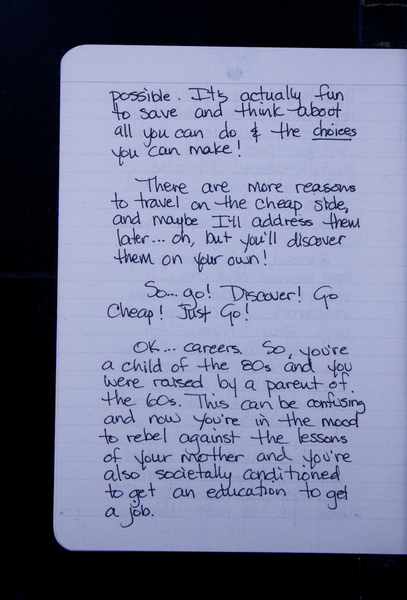 possible. It's actually fun
to save and think about
all you can do & the choices
you can make!
There are more reasons
to travel on the cheap side,
and maybe I'll address them
later... oh, but you'll discover
them on your own!
So... go! Discover! Go
Cheap! Just Go!
OK... careers. So, you're
a child of the 80s and you
were raised by a parent of
the 60s. This can be confusing
and now you're in the mood
to rebel against the lessons
of your mother and you're
also societally conditioned
to get an education to get
a job.